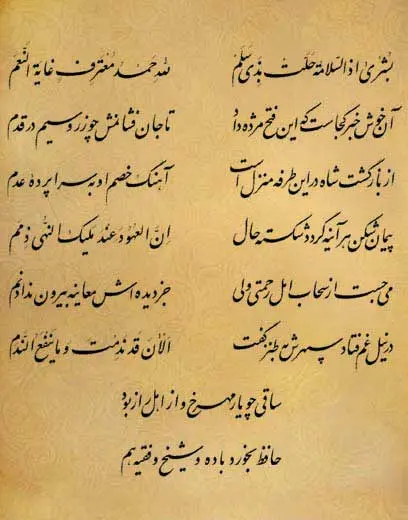 بُشری اِذ السَّلامةُ حَلَّت بِذی سَلَم لله حمدُ مُعترفٍ غایةَ النَّعَم
آن خوش خبر کجاست که این فتح مژده داد تا جان فشانمش چو زر و سیم در قدم
از بازگشت شاه در این طرفه منزل است آهنگ خصم او به سراپرده عدم
پیمان شکن هرآینه گردد شکسته حال اِنَّ العُهودَ عِندَ مَلیکِ النُّهی ذِمَم
می‌جست از سحاب امل رحمتی ولی جز دیده‌اش معاینه بیرون نداد نم
در نیل غم فتاد سپهرش به طنز گفت الآنَ قَد نَدِمتَ و ما یَنفَعُ النَّدَم
ساقی چو یار مهرخ و از اهل راز بود
حافظ بخورد باده و شیخ و فقیه هم